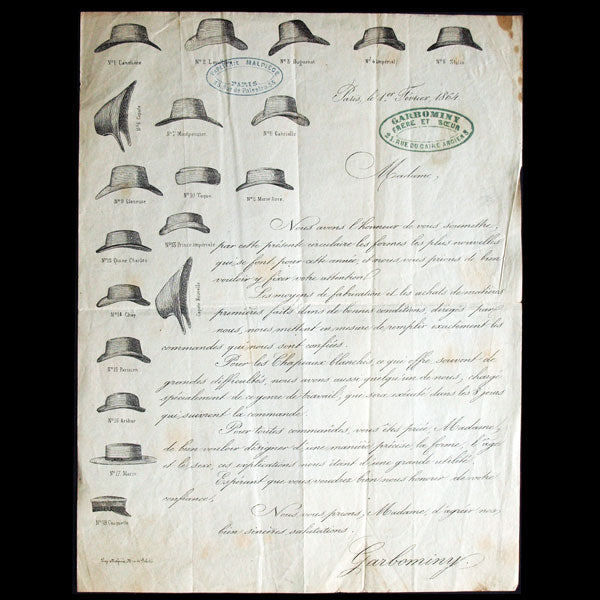 Nº 1 Cavalière
Nº 3 Huguenot
Nº 4 Impérial
MALPIÈCE
PARIS
Paris, le 1er Février, 1864.
GARBOMINY
FRÈRE ET SŒUR
21, RUE DU CAIRE ANCIEN 8
Nº 7 Montpensier
Nº 8 Gabrielle
Madame,
Nº 10 Toque
Nous avons l'honneur de vous soumettre,
Nº 13 Prince impériale
par cette présente circulaire les formes les plus nouvelles
Nº 12 Diane Charles
qui se font pour cette année, et nous vous prions de bien
vouloir y fixer votre attention.
Capote Nouvelle
Les moyens de fabrication et les achats de matières
premières faits dans de bonnes conditions, dirigés par
Nº 14
nous, nous mettent en mesure de remplir exactement les
commandes qui nous sont confiées.
Pour les Chapeaux blanches, ce que offre souvent de
Nº 15 Parisien
grandes difficultés, nous avons aussi quelqu'un de nous, chargé
spécialement de ce genre de travail, que sera exécuté dans les 8 jours
qui suivront la commande.
Nº 16 Arthur
Pour toutes commandes, vous êtes priée, Madame,
de bien vouloir désigner d'une manière précise, la forme, l'âge
et le sexe, ces explications nous étant d'une grande utilité.
Nº 17 Marin
Espérant que vous voudrez bien nous honorer de votre
confiance,
Nous vous prions, Madame, d'agréer nos
Nº 18 Casquette
bien sincères salutations.
Garbominy.